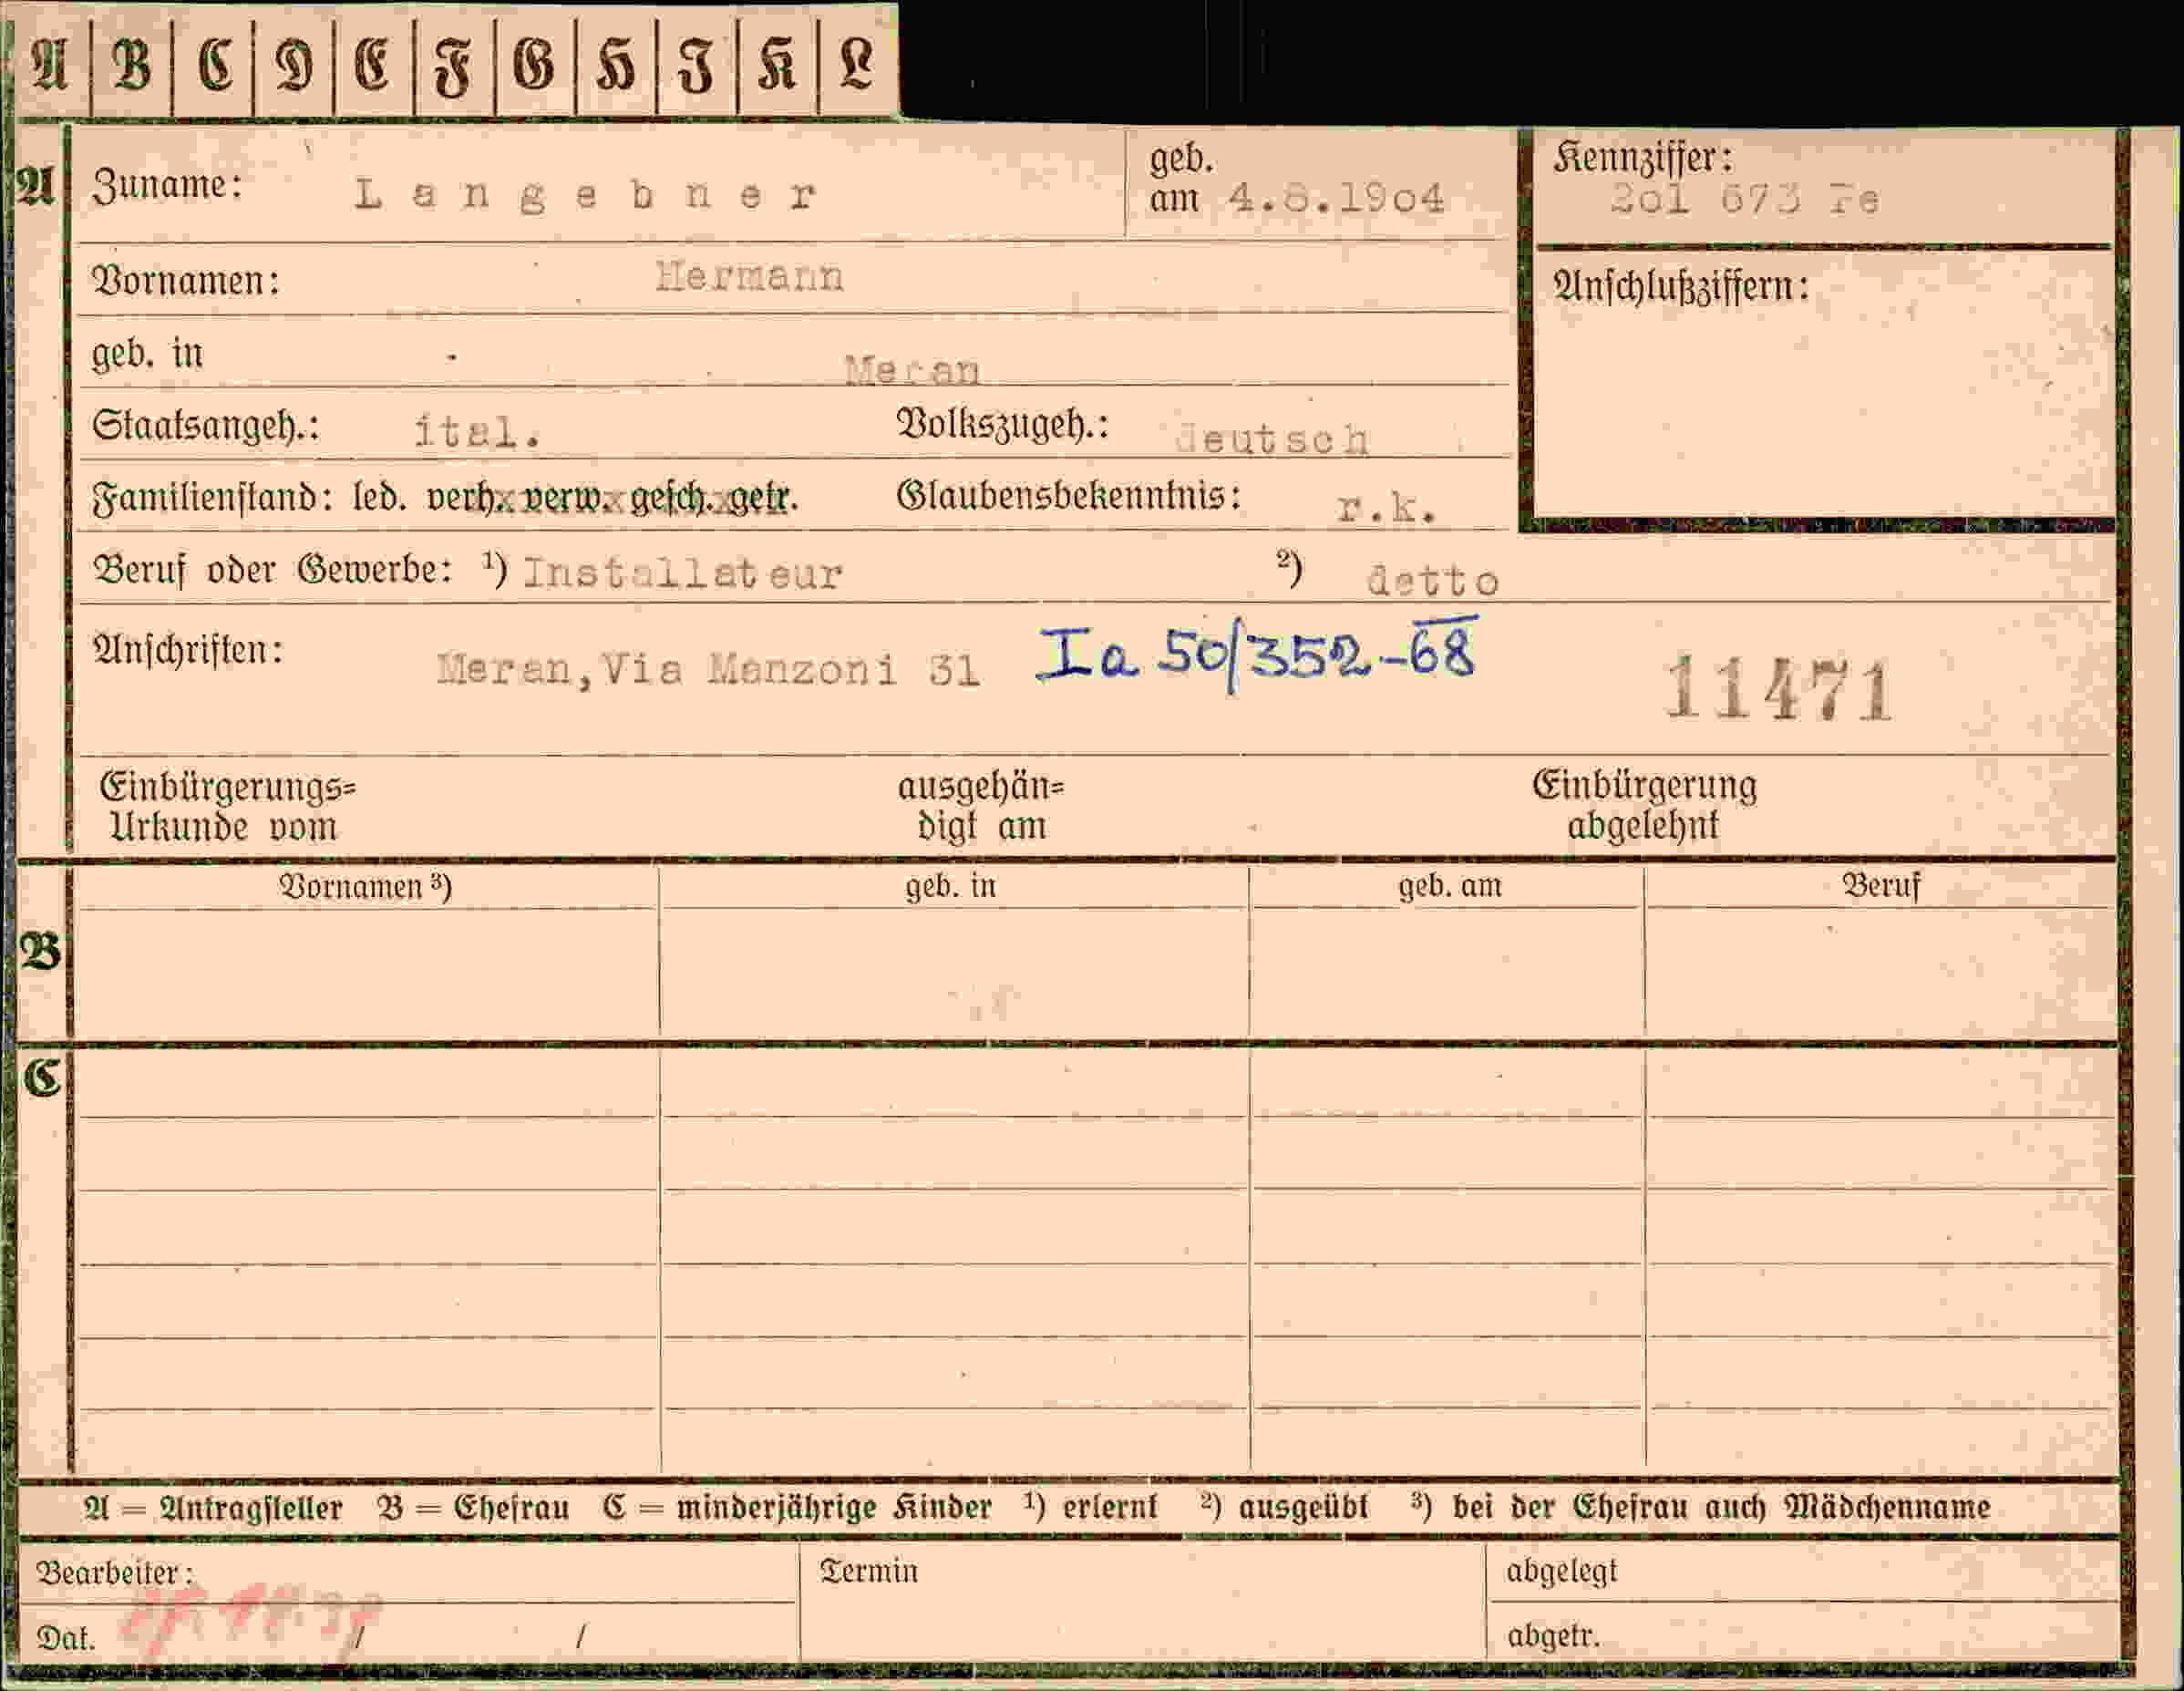 A B C D E F G H I K L
A Zuname: Langebner geb. am 4.8.1904 Kennziffer: 2ol 673
Vornamen: Hermann Anschlußziffern:
geb. in Meran
Staatsangeh.: ital. Volkszugeh.: deutsch
Familienstand: led. verh. verw. gesch. getr. Glaubensbekenntnis: r.k.
Beruf oder Gewerbe: ¹) Installateur ²) detto
Anschriften: Meran, Via Manzoni 31 Ia 50/352-68 11471
Einbürgerungs= ausgehän= Einbürgerung
Urkunde vom digt am abgelehnt
Vornamen ³) geb. in geb. am Beruf
B
C
A = Antragsteller B = Ehefrau C = minderjährige Kinder ¹) erlernt ²) ausgeübt ³) bei der Ehefrau auch Mädchenname
Bearbeiter: Termin abgelegt
Dat. / / abgetr.